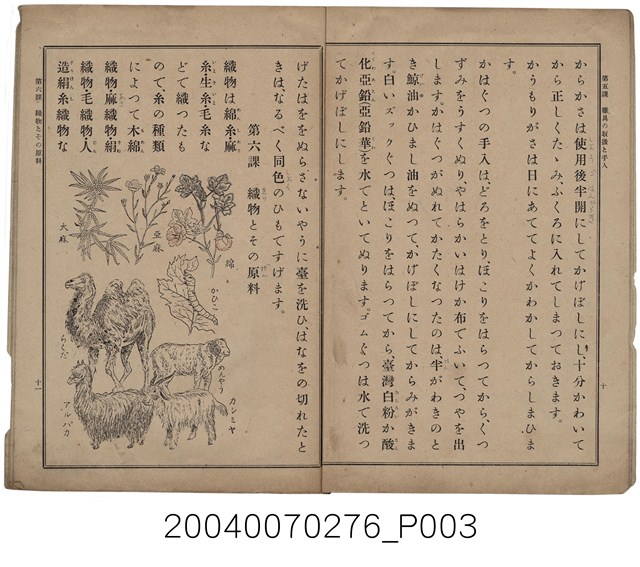 第五課 雜具の取扱と手入
からかさは使用後半開にしてかげぼしにし、十分かわいて
から正しくたゝみ、ふくろに入れてしまつておきます。
かうもりがさは日にあててよくかわかしてからしまひま
す。
かはぐつの手入は、どろをとり、ほこりをはらつてから、くつ
ずみをうすくぬり、やはらかいはけか布でふいて、つやを出
します。かはぐつがぬれてかたくなつたのは、半がわきのと
き鯨油かひまし油をぬつて、かげぼしにしてからみがきま
す。白いズックぐつは、ほこりをはらつてから、臺灣白粉か酸
化亞鉛(亞鉛華)を水でといてぬります。ゴムぐつは水で洗つ
てかげぼしにします。
十
げたはをぬらさないやうに臺を洗ひ、はなをの切れたと
きは、なるべく同色のひもですげます。
第六課 織物とその原料
織物は綿糸・麻
糸・生糸・毛糸な
どで織つたも
ので、糸の種類
によつて木綿
織物・麻織物・絹
織物・毛織物・人
造絹糸織物な
綿
亞麻
大麻
かひこ
らくだ
めんやう
カシミヤ
アルパカ
第六課 織物とその原料
十一
20040070276_P003